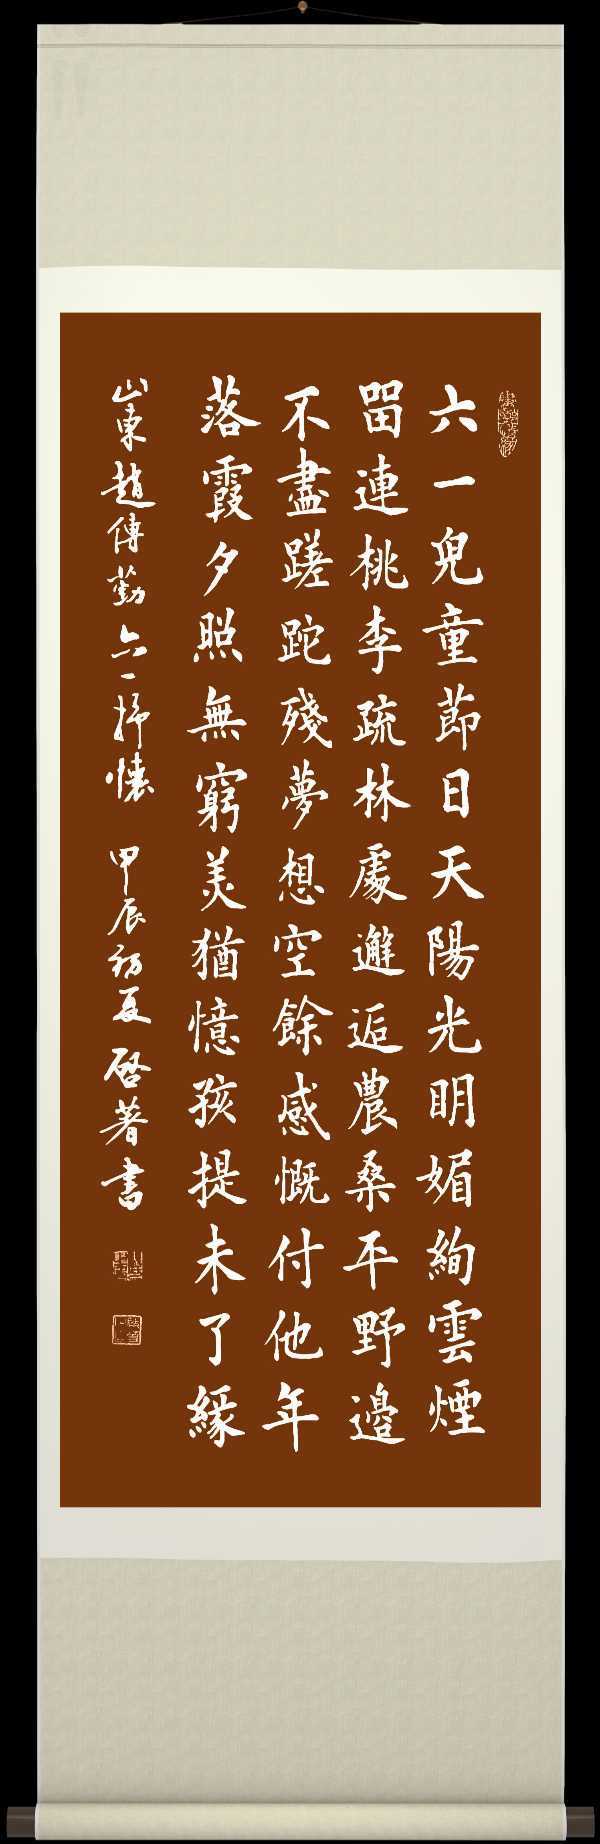 六一兒童節日天陽光明媚絢雲煙
畱連桃李疏林處邂逅農桑平野邊
不盡蹉跎殘夢想空餘感慨付他年
落霞夕照無窮美猶憶孩提未了緣
山東趙傳勤六一抒懷 甲辰初夏 啓著書